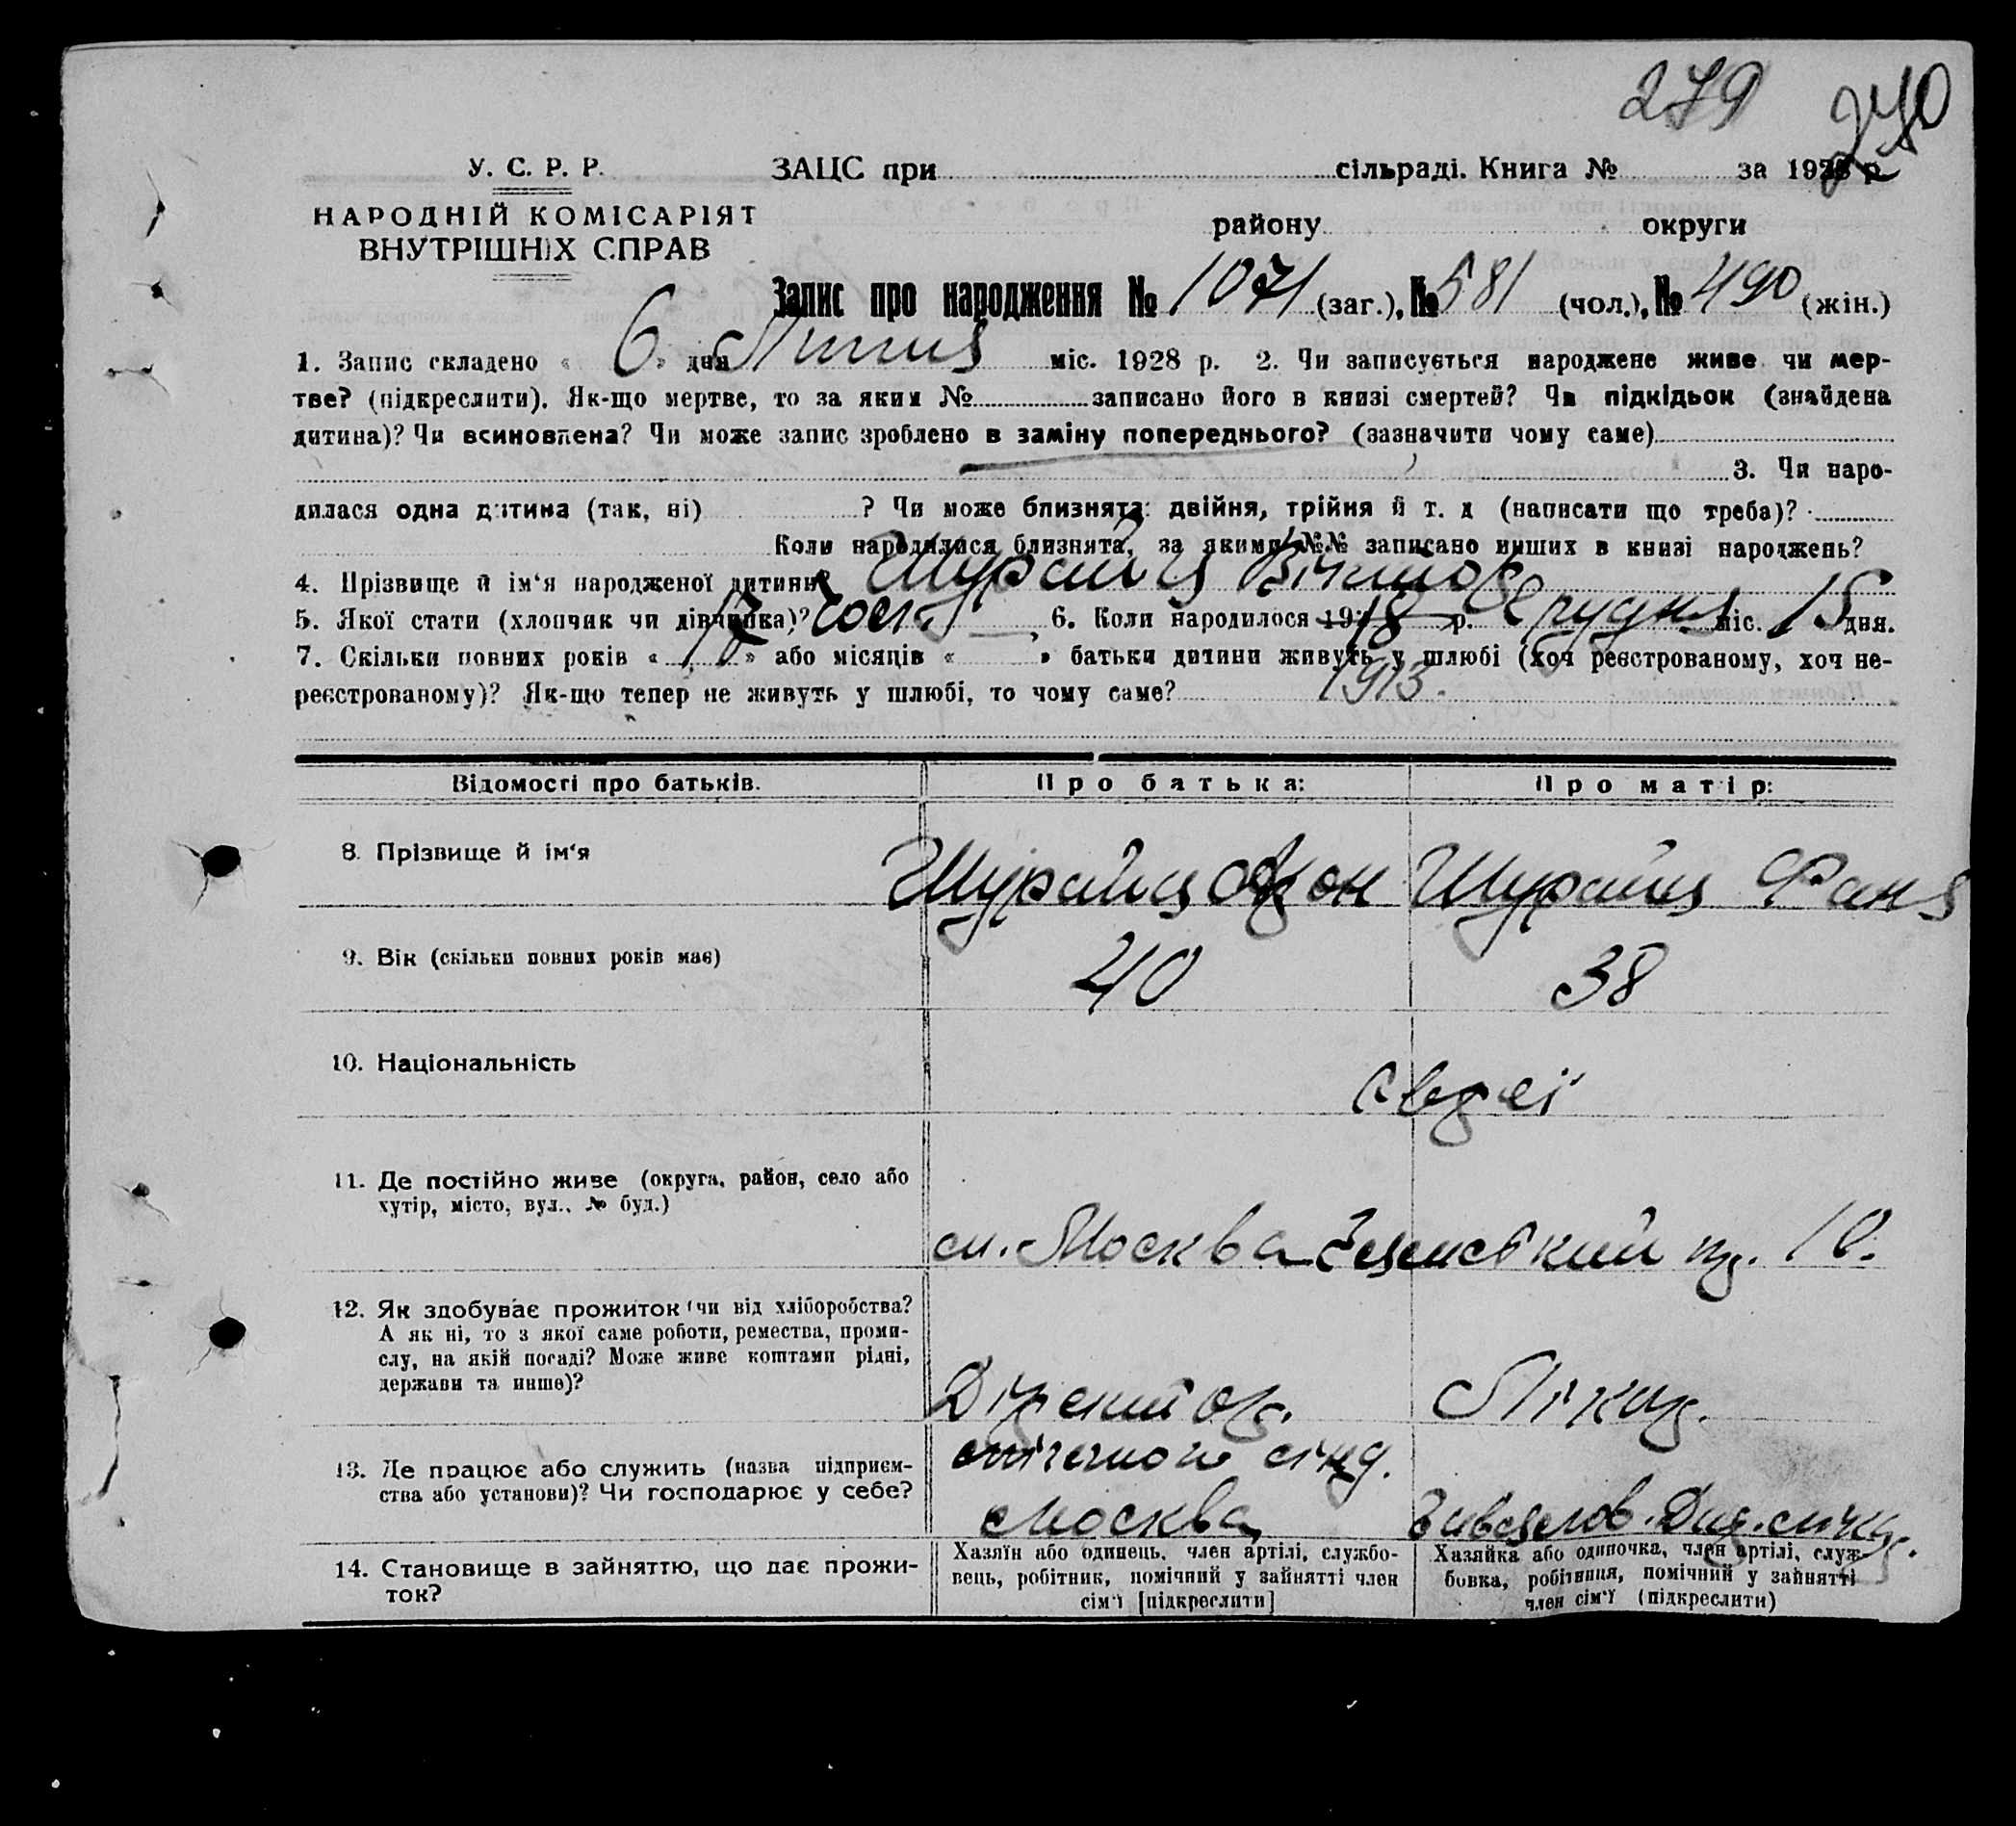 279 270
У. С. Р. Р. ЗАЦС при сільраді. Книга № за 1928 р.
НАРОДНІЙ КОМІСАРІЯТ району округи
ВНУТРІШНІХ СПРАВ
Запис про народження № 1071 (заг.), № 581 (чол.), № 490 (жін.)
1. Запис складено « 6 » дня Липня міс. 1928 р. 2. Чи записується народжене живе чи мер-
тве? (підкреслити). Як-що мертве, то за яким № записано його в книзі смертей? Чи підкідьок (знайдена
дитина)? Чи всиновлена? Чи може запис зроблено в заміну попереднього? (зазначити чому саме)
3. Чи наро-
дилася одна дитина (так, ні) ? Чи може близнята: двійня, трійня й т. д (написати що треба)?
Коли народилися близнята, за якими №№ записано инших в книзі народжень?
4. Прізвище й ім‘я народженої дитини? Шурайц Віктор
5. Якої стати (хлопчик чи дівчинка)? чол. 6. Коли народилося 1918 р. Грудня міс. 15 дня.
7. Скільки повних років « 17 » або місяців « » батьки дитини живуть у шлюбі (хоч реєстрованому, хоч не-
реєстрованому)? Як-що тепер не живуть у шлюбі, то чому саме? 1913.
Відомості про батьків. Про батька: Про матір:
8. Прізвище й ім‘я Шурайц Шурайц Фаня
9. Вік (скільки повних років має) 40 38
10. Національність євреї
11. Де постійно живе (округа, район, село або
хутір, місто, вул., № буд.)
м. Москва 10.
12. Як здобуває прожиток (чи від хліборобства?
А як ні, то з якої саме роботи, ремества, проми-
слу, на якій посаді? Може живе коштами рідні,
держави та инше)?
Діректор. Лікар.
13. Де працює або служить (назва підприєм-
ства або установи)? Чи господарює у себе?
сінд.
Москва
14. Становище в зайняттю, що дає прожи-
ток?
Хазяїн або одинець, член артілі, службо-
вець, робітник, помічний у зайнятті член
сім‘ї [підкреслити]
Хазяйка або одиночка, член артілі, служ-
бовка, робітниця, помічний у зайнятті
член сім‘ї (підкреслити)